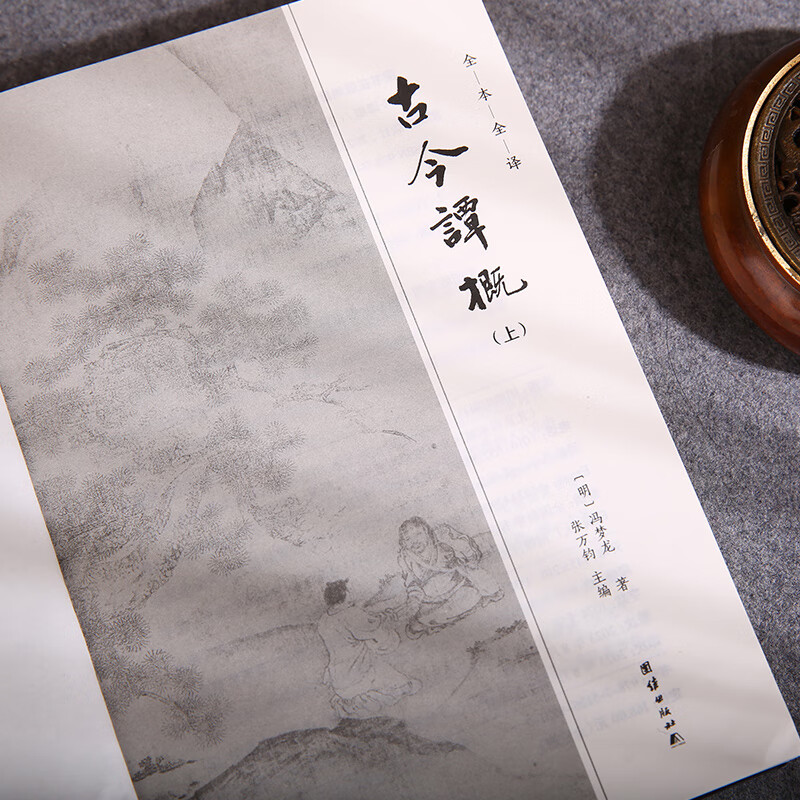 全—本—全—译
古今譚概
（上）
〔明〕冯梦龙 著
张万钧 主编
团结出版社